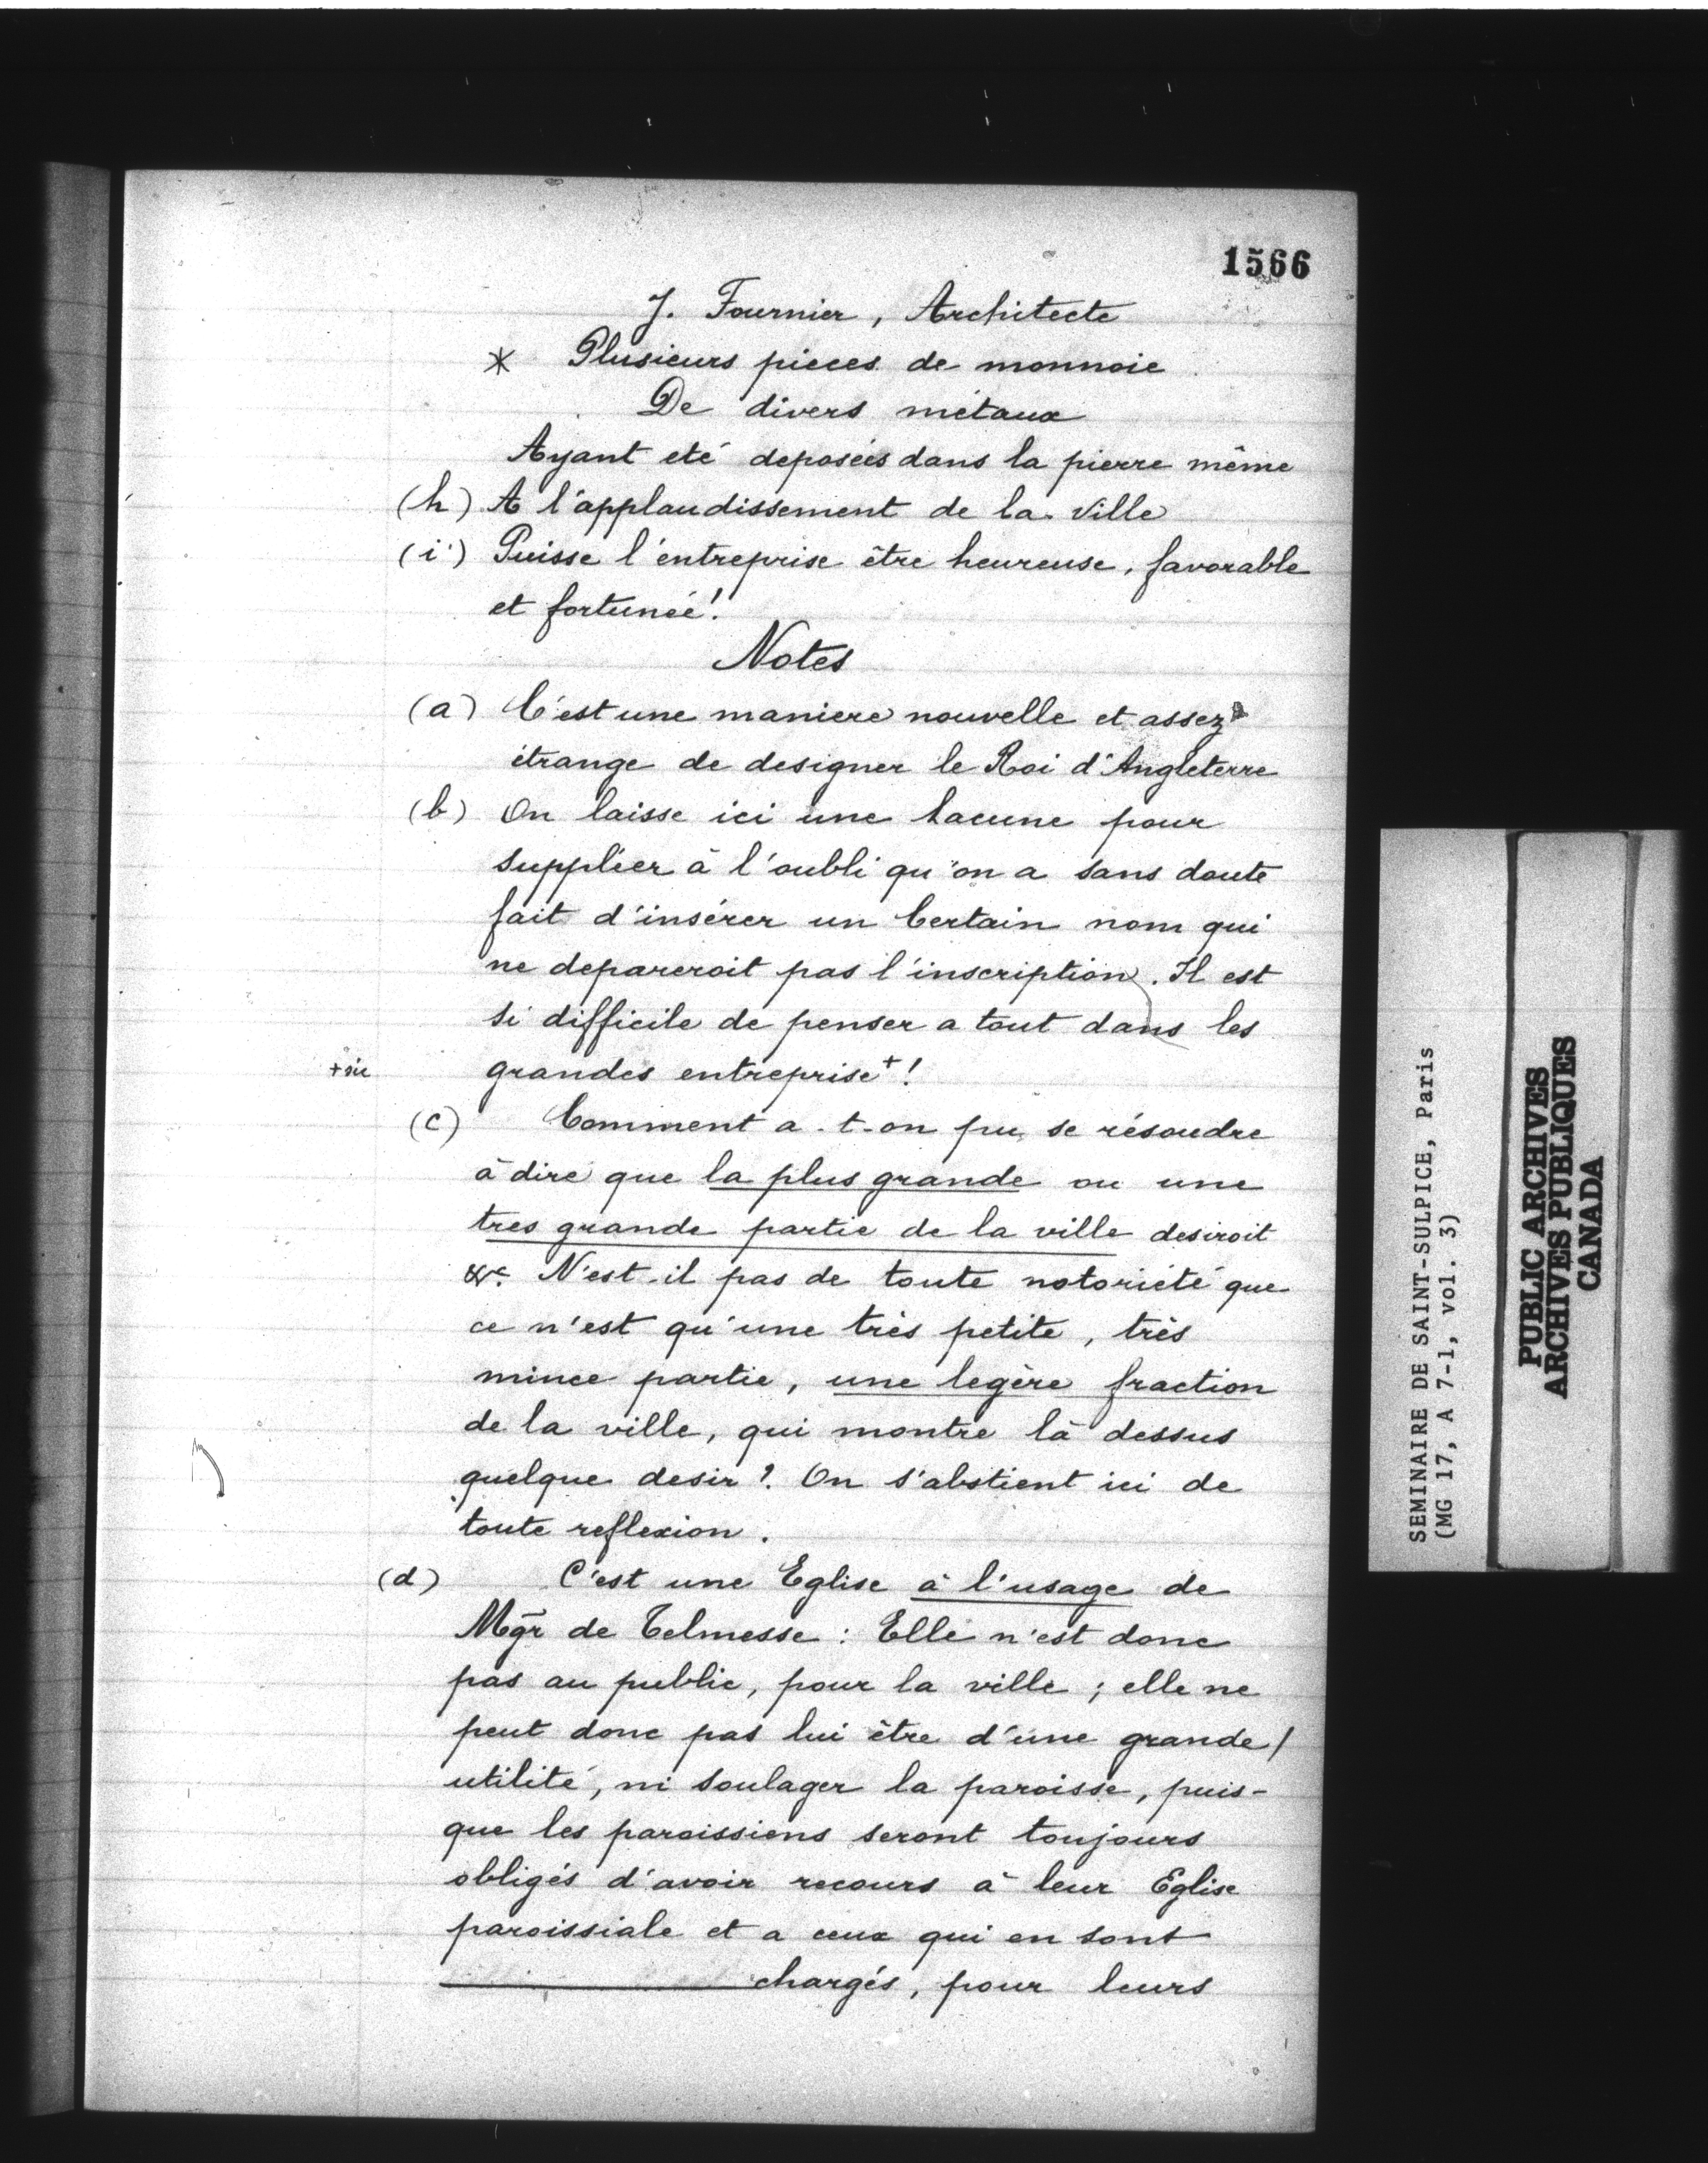 1566
J. Fournier, Architecte
* Plusieurs pieces de monnoie
De divers métaux
Ayant eté deposées dans la pierre même
(h) A l'applaudissement de la Ville
(i) Puisse l'entreprise être heureuse, favorable
et fortunée!
Notes
(a) C'est une maniere nouvelle et assez
étrange de designer le Roi d'Angleterre
(b) On laisse ici une lacune pour
suppléer à l'oubli qu'on a sans doute
fait d'insérer un Certain nom qui
ne depareroit pas l'inscription. Il est
si difficile de penser a tout dans les
+sic grandes entreprise+!
(c) Comment a-t-on pu se résoudre
à dire que la plus grande ou une
tres grande partie de la ville desiroit
&c. N'est-il pas de toute notoriété que
ce n'est qu'une très petite, très
mince partie, une legère fraction
de la ville, qui montre là dessus
quelque desir? On s'abstient ici de
toute reflexion.
(d) C'est une Eglise à l'usage de
Mgr de Telmesse: Elle n'est donc
pas au public, pour la ville; elle ne
peut donc pas lui être d'une grande/
utilité, ni soulager la paroisse, puis-
que les paroissiens seront toujours
obligés d'avoir recours à leur Eglise
paroissiale et a ceux qui en sont
chargés, pour leurs
SEMINAIRE DE SAINT-SULPICE, Paris
(MG 17, A 7-1, vol. 3)
PUBLIC ARCHIVES
ARCHIVES PUBLIQUES
CANADA